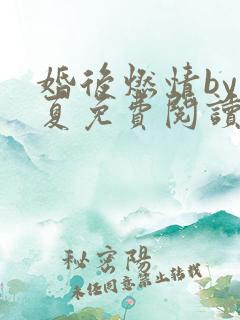 婚後燃情by
夏免費閱讀
秘密陽
未经同意禁止转载